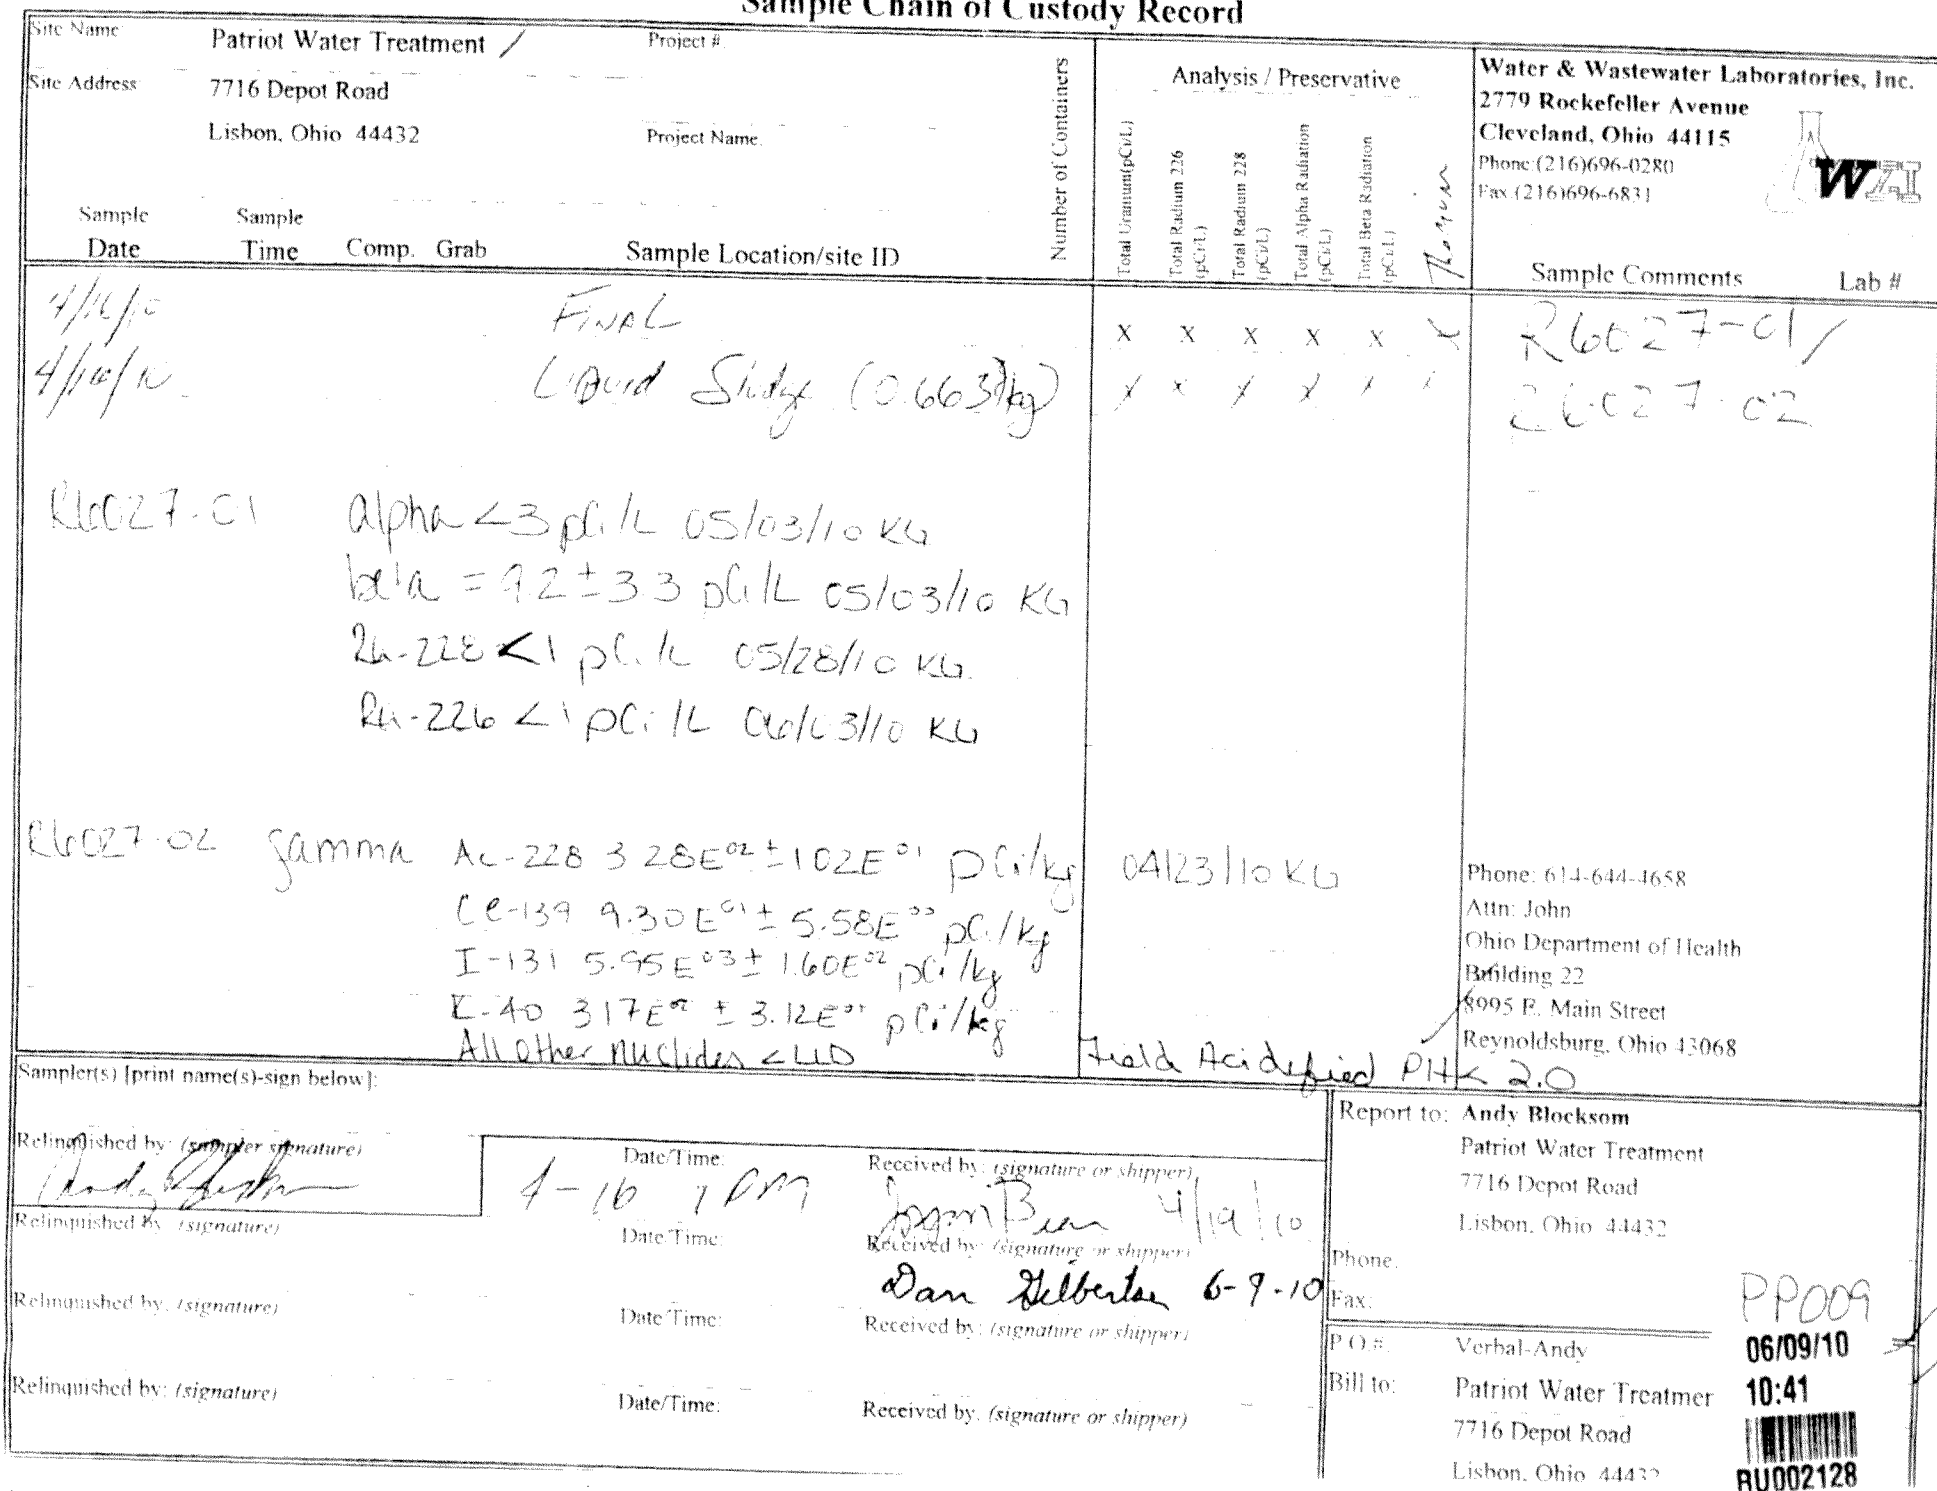 Sample Chain of Custody Record
Site Name: Patriot Water Treatment / Project #.
Site Address 7716 Depot Road
Lisbon, Ohio 44432 Project Name.
Number of Containers
Analysis / Preservative
Total Uranium(pCi/L)
Total Radium 226 (pCi/L)
Total Radium 228 (pCi/L)
Total Alpha Radiation (pCi/L)
Total Beta Radiation (pCi/L)
Water & Wastewater Laboratories, Inc.
2779 Rockefeller Avenue
Cleveland, Ohio 44115
Phone:(216)696-0280
Fax.(216)696-6831
Sample Date Sample Time Comp. Grab Sample Location/site ID Sample Comments Lab #
4/16/10 FINAL X X X X X X R6027-01/
4/16/10 Liquid Sludge (0.663kg) X X X X X R6027-02
R6027-01 alpha <3 pCi/L 05/03/10 KG
beta = 9.2 ± 3.3 pCi/L 05/03/10 KG
Ra-228 <1 pCi/L 05/28/10 KG
Ra-226 <1 pCi/L 06/03/10 KG
R6027-02 gamma Ac-228 3 28E02 ± 1 02E01 pCi/kg 04/23/10 KG
Ce-139 9.30E01 ± 5.58E00 pCi/kg
I-131 5.95E03 ± 1.60E02 pCi/kg
K-40 3 17E02 ± 3.12E01 pCi/kg
All Other Nuclides < LLD
Phone: 614-644-4658
Attn: John
Ohio Department of Health
Building 22
8995 E. Main Street
Reynoldsburg, Ohio 43068
Field Acidefied PH < 2.0
Sampler(s) [print name(s)-sign below]:
Relinquished by: (sampler signature) Date/Time: Received by: (signature or shipper)
4-16 1 PM 4/19/10
Relinquished by (signature) Date/Time: Received by: (signature or shipper)
Dan 6-9-10
Relinquished by: (signature) Date/Time: Received by: (signature or shipper)
Relinquished by: (signature) Date/Time: Received by. (signature or shipper)
Report to: Andy Blocksom
Patriot Water Treatment
7716 Depot Road
Lisbon, Ohio 44432
Phone.
Fax:
PP009
P.O.#. Verbal-Andy
06/09/10
Bill to: Patriot Water Treatmer
10:41
7716 Depot Road
Lisbon, Ohio 44432
RU002128